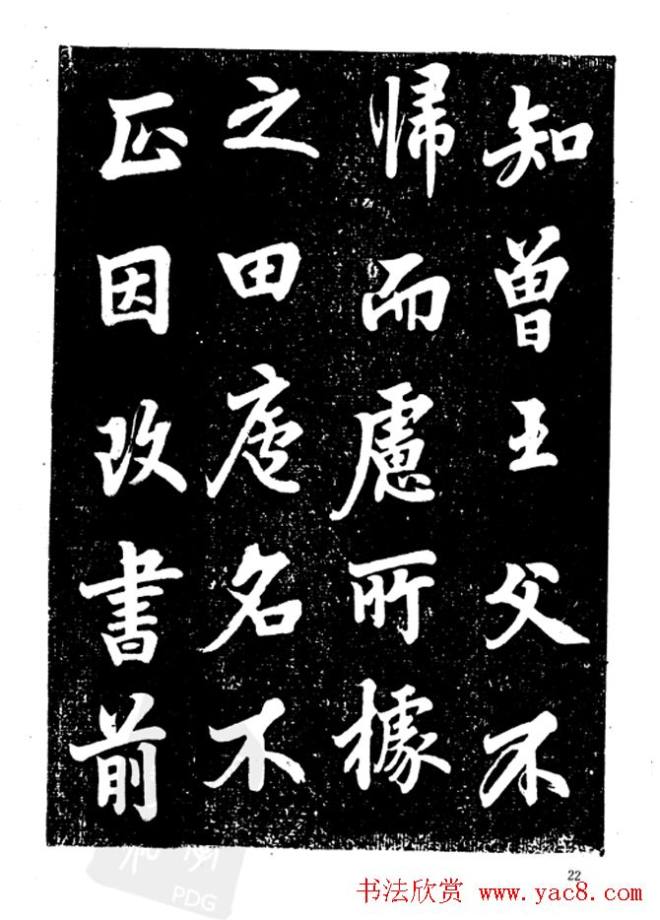 知曾王父不
帰而慮所據
之田名不
正因改書前
22
书法欣赏 www.yac8.com
PDG